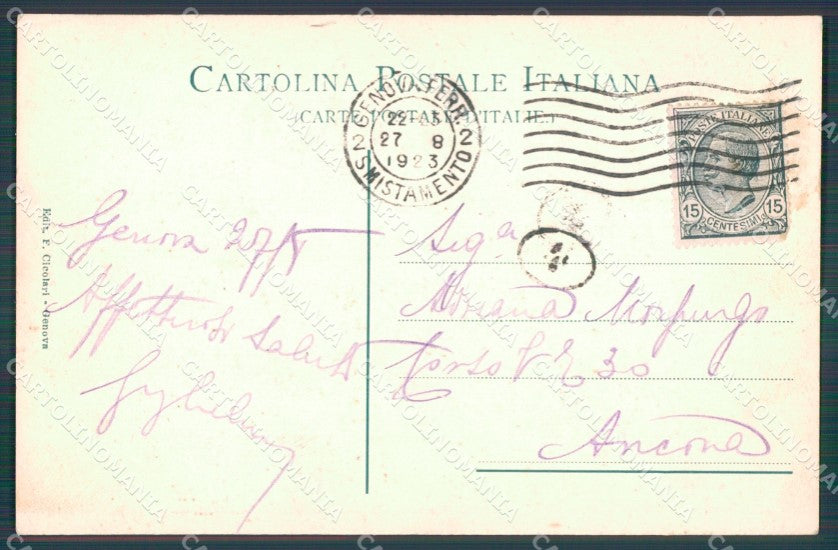 CARTOLINA POSTALE ITALIANA
(CARTE POSTALE D'ITALIE)
GENOVA FERR.
22-23
2 27 8 2
1923
SMISTAMENTO
POSTE ITALIANE
15 15
CENTESIMI
Edit. F. Cicolari - Genova
Genova 27/8
Affettuosi Saluti
Sig.a
Adriana Morpurgo
Corso V E 30
Ancona
CARTOLINOMANIA